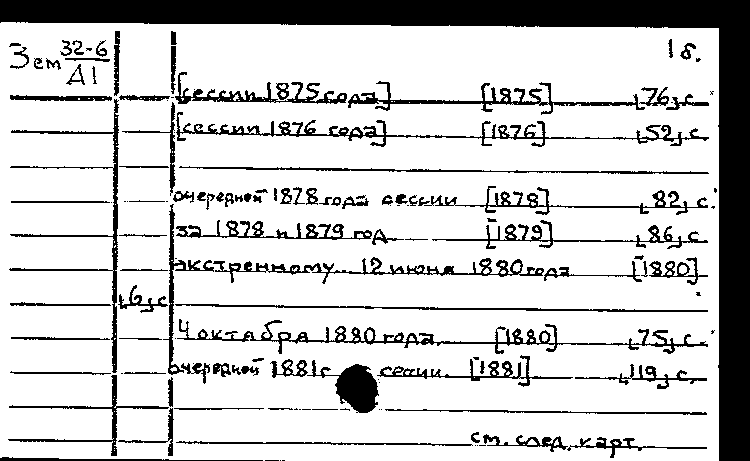 Зем 32-6 1 б.
Д1
[сессии 1875 года] [1875] ⌊76⌋ с.
[сессии 1876 года] [1876] ⌊52⌋ с.
очередной 1878 года сессии [1878] ⌊82⌋ с.
за 1878 и 1879 год [1879] ⌊86⌋ с.
экстренному... 12 июня 1880 года [1880]
⌊6⌋ с
4 октября 1880 года. [1880] ⌊75⌋ с.
очередной 1881 г сессии. [1881] ⌊119⌋ с.
см. след. карт.